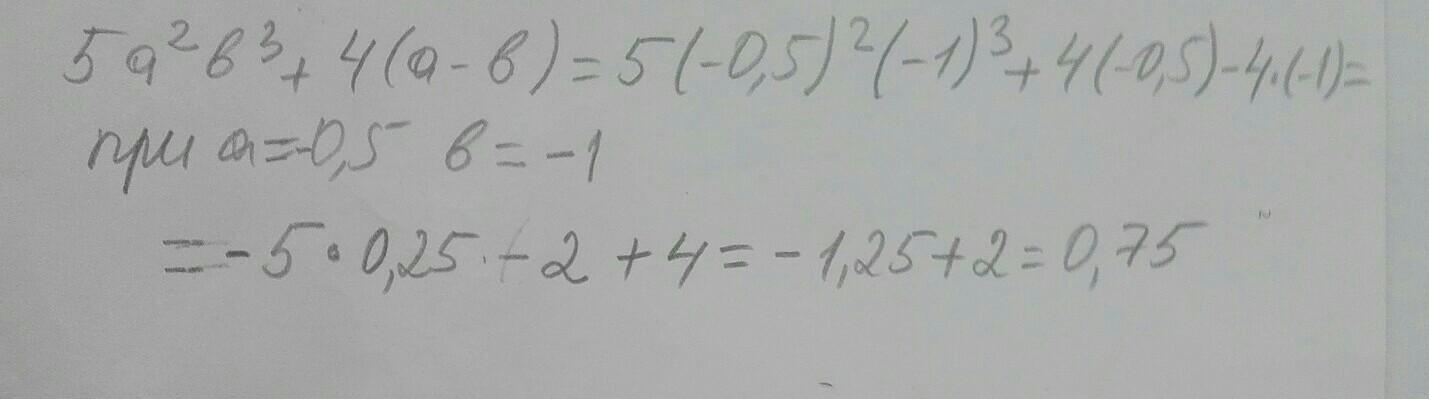 5a²b³+4(a-b)=5(-0,5)²(-1)³+4(-0,5)-4·(-1)=
при a=-0,5 b=-1
=-5·0,25-2+4=-1,25+2=0,75